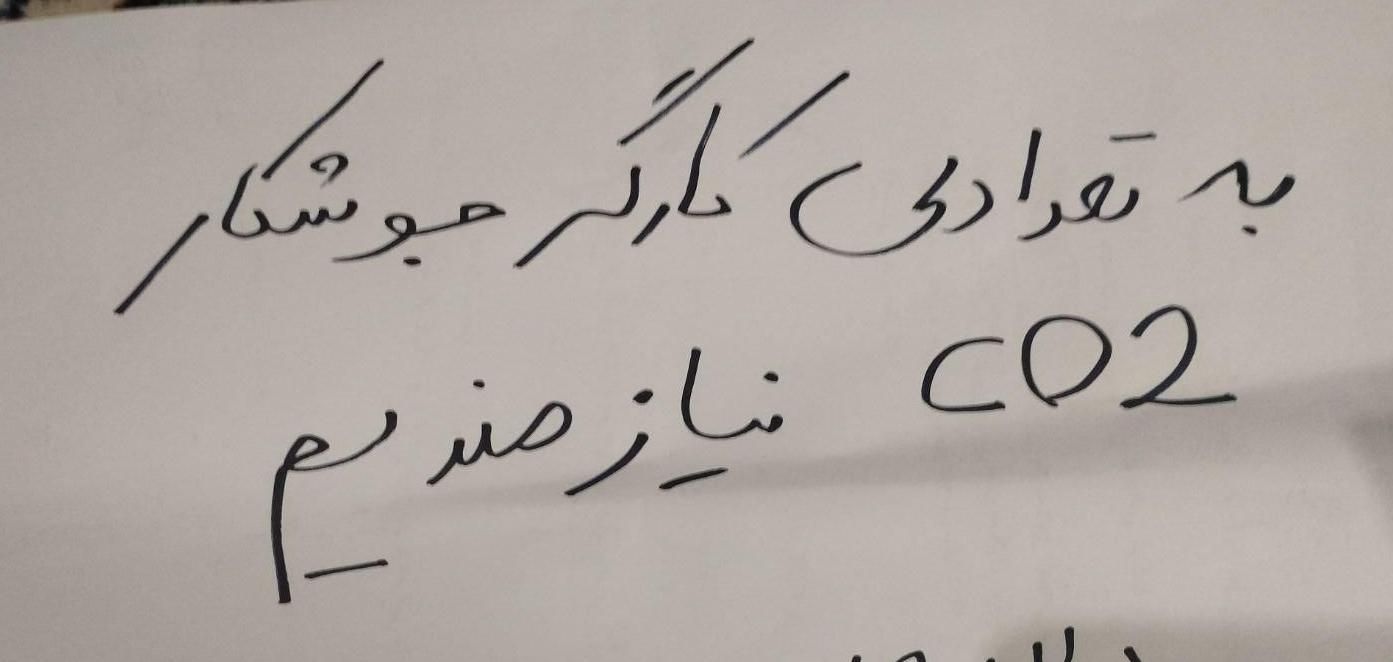 به تعدادی کارگر جوشکار
CO2 نیازمندیم